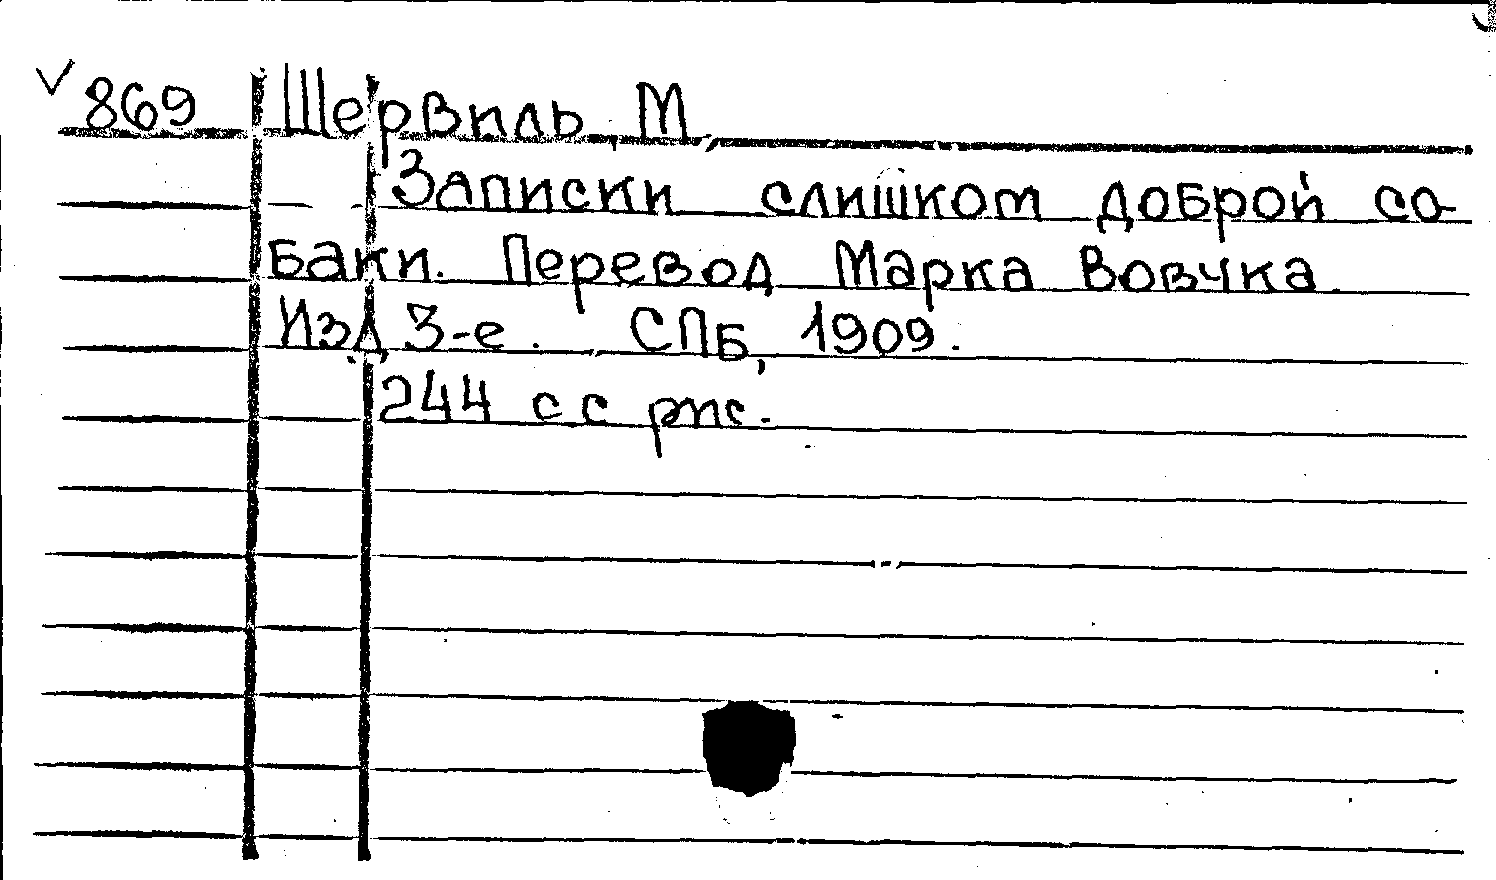 √ 869 Шервиль М.
Записки слишком доброй со-
баки. Перевод Марка Вовчка.
Изд. 3-е. СПб, 1909.
244 с с рис.